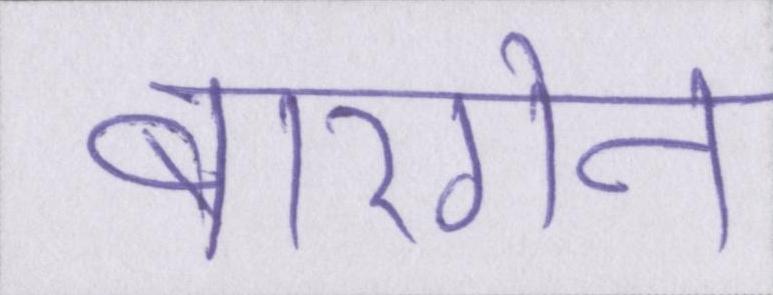 बारगेन